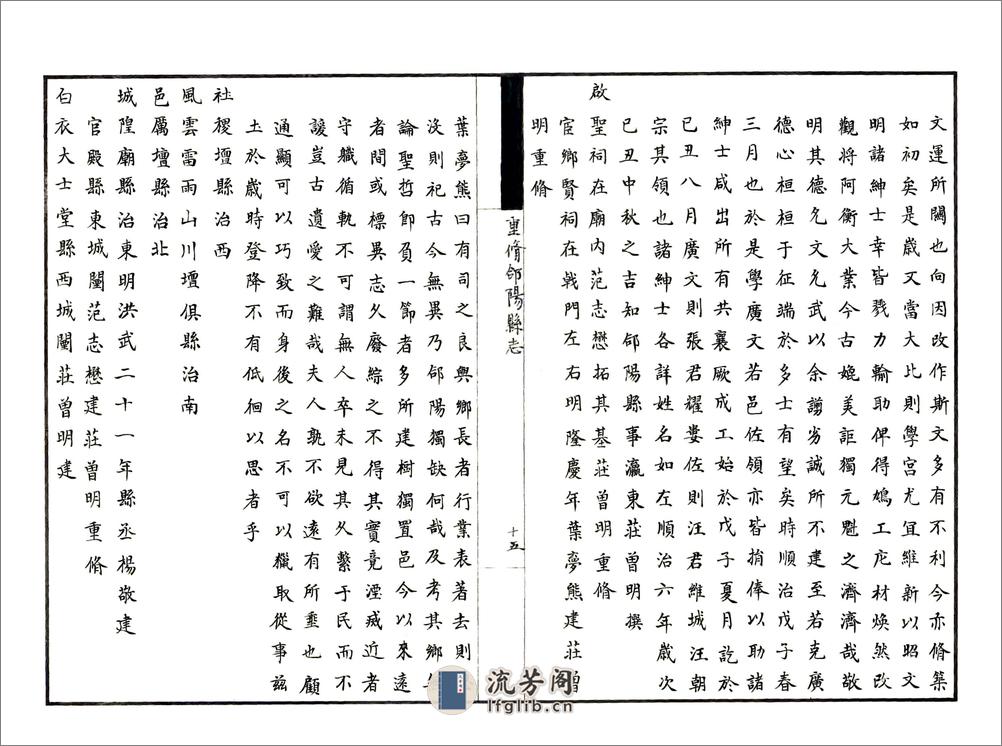 文運所關也向因改作斯文多有不利今亦脩築
如初矣是歲又當大比則學宮尤宜維新以昭文
明諸紳士幸皆戮力輸助俾得鳩工庀材煥然改
觀將阿衡大業今古媲美詎獨元魁之濟濟哉敬
明其德允文允武以余謭劣誠所不建至若克廣
德心桓桓于征端於多士有望矣時順治戊子春
三月也於是學廣文若邑佐領亦皆捐俸以助諸
紳士咸出所有共襄厥成工始於戊子夏月訖於
己丑八月廣文則張君耀婁佐則汪君維城汪朝
宗其領也諸紳士各詳姓名如左順治六年歲次
己丑中秋之吉知郃陽縣事瀛東莊曾明撰
啟聖祠在廟內范志懋拓其基莊曾明重脩
宦鄉賢祠在戟門左右明隆慶年葉夢熊建莊曾
明重脩
重脩郃陽縣志
十五
葉夢熊曰有司之良與鄉長者行業表著去則
沒則祀古今無異乃郃陽獨缺何哉及考其鄉
論聖哲即負一節者多所建樹獨置邑今以來遠
者間或標異志久廢綜之不得其實竟湮彧近者
守職循軌不可謂無人卒未見其久繫于民而不
諼豈古遺愛之難哉夫人孰不欲遠有所垂也顧
通顯可以巧致而身後之名不可以獵取從事茲
土於歲時登降不有低徊以思者乎
社稷壇縣治西
風雲雷雨山川壇俱縣治南
邑厲壇縣治北
城隍廟縣治東明洪武二十一年縣丞楊敬建
官殿縣東城闉范志懋建莊曾明重脩
白衣大士堂縣西城闉莊曾明建
流芳阁
lfglib.cn